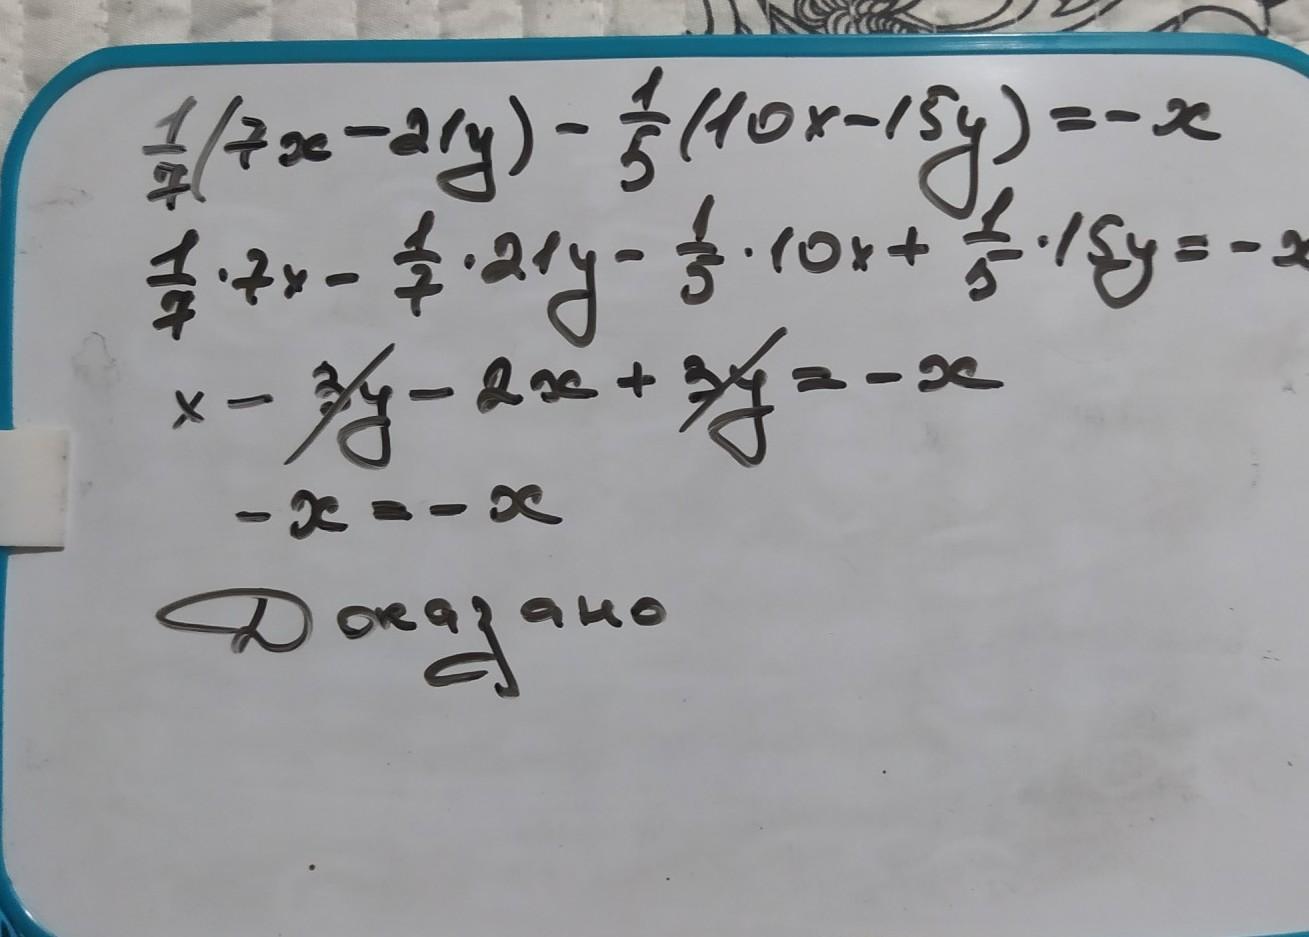 1/7(7x-21y)-1/5(10x-15y)=-x
1/7·7x-1/7·21y-1/5·10x+1/5·15y=-x
x-3y-2x+3y=-x
-x=-x
Доказано